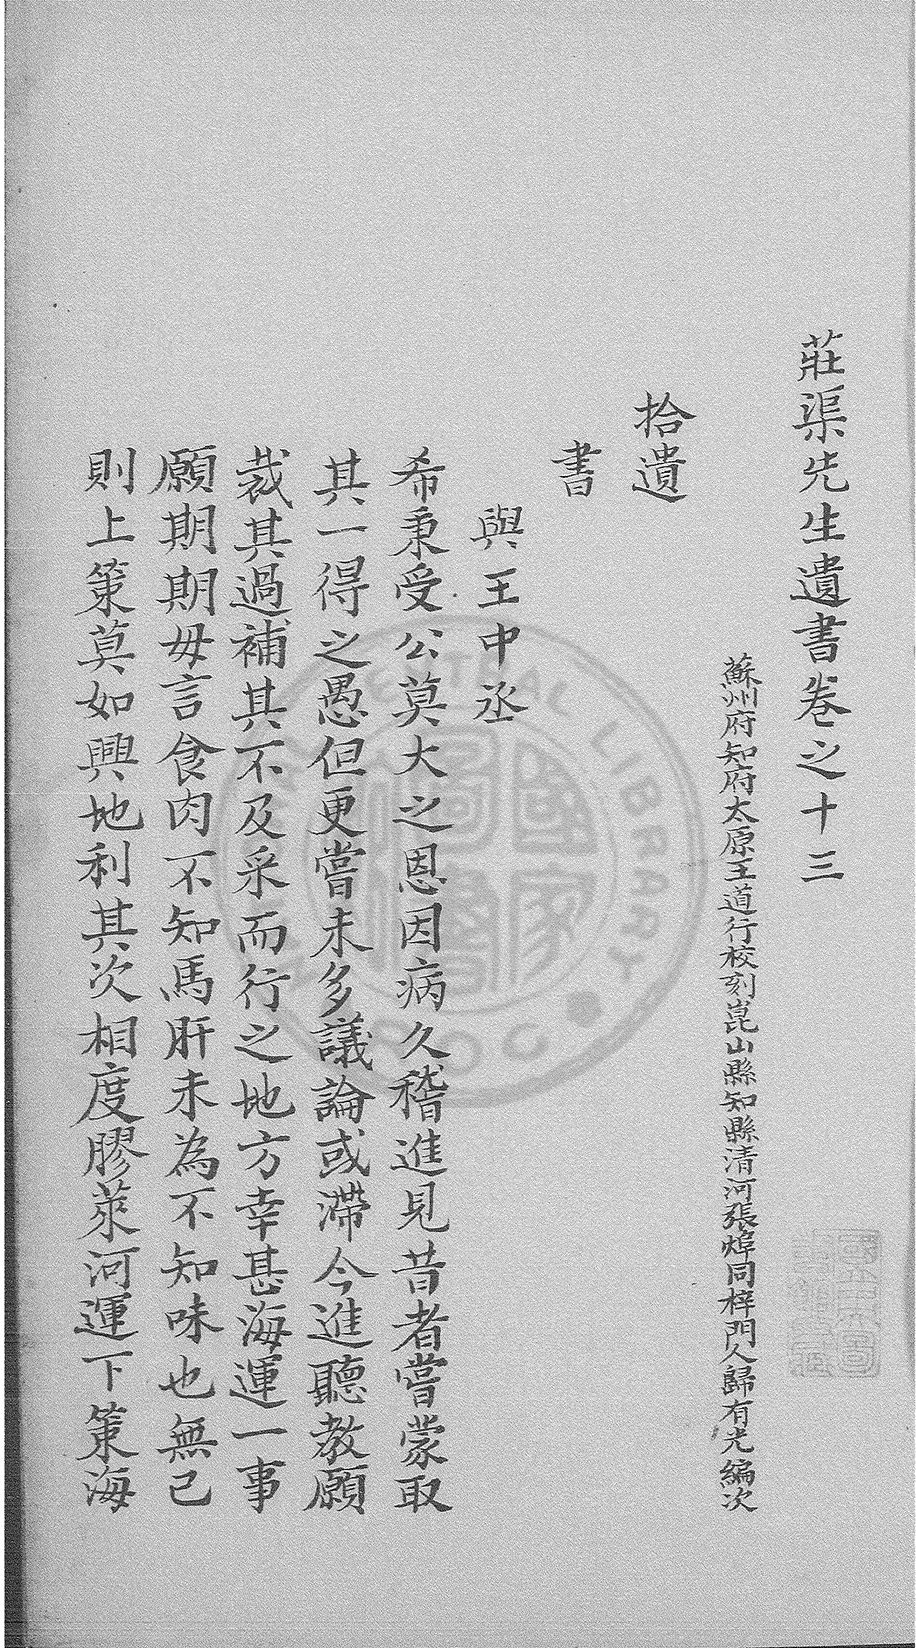 莊渠先生遺書卷之十三
蘇州府知府太原王道行校刻崑山縣知縣清河張焯同梓門人歸有光編次
拾遺
書
與王中丞
希秉受公莫大之恩因病久稽進見昔者嘗蒙取
其一得之愚但更嘗未多議論或滯今進聽教願
裁其過補其不及采而行之地方幸甚海運一事
願期期毋言食肉不知馬肝未為不知味也無已
則上策莫如興地利其次相度膠萊河運下策海
NATIONAL CENTRAL LIBRARY
R.O.C.
國家圖書館